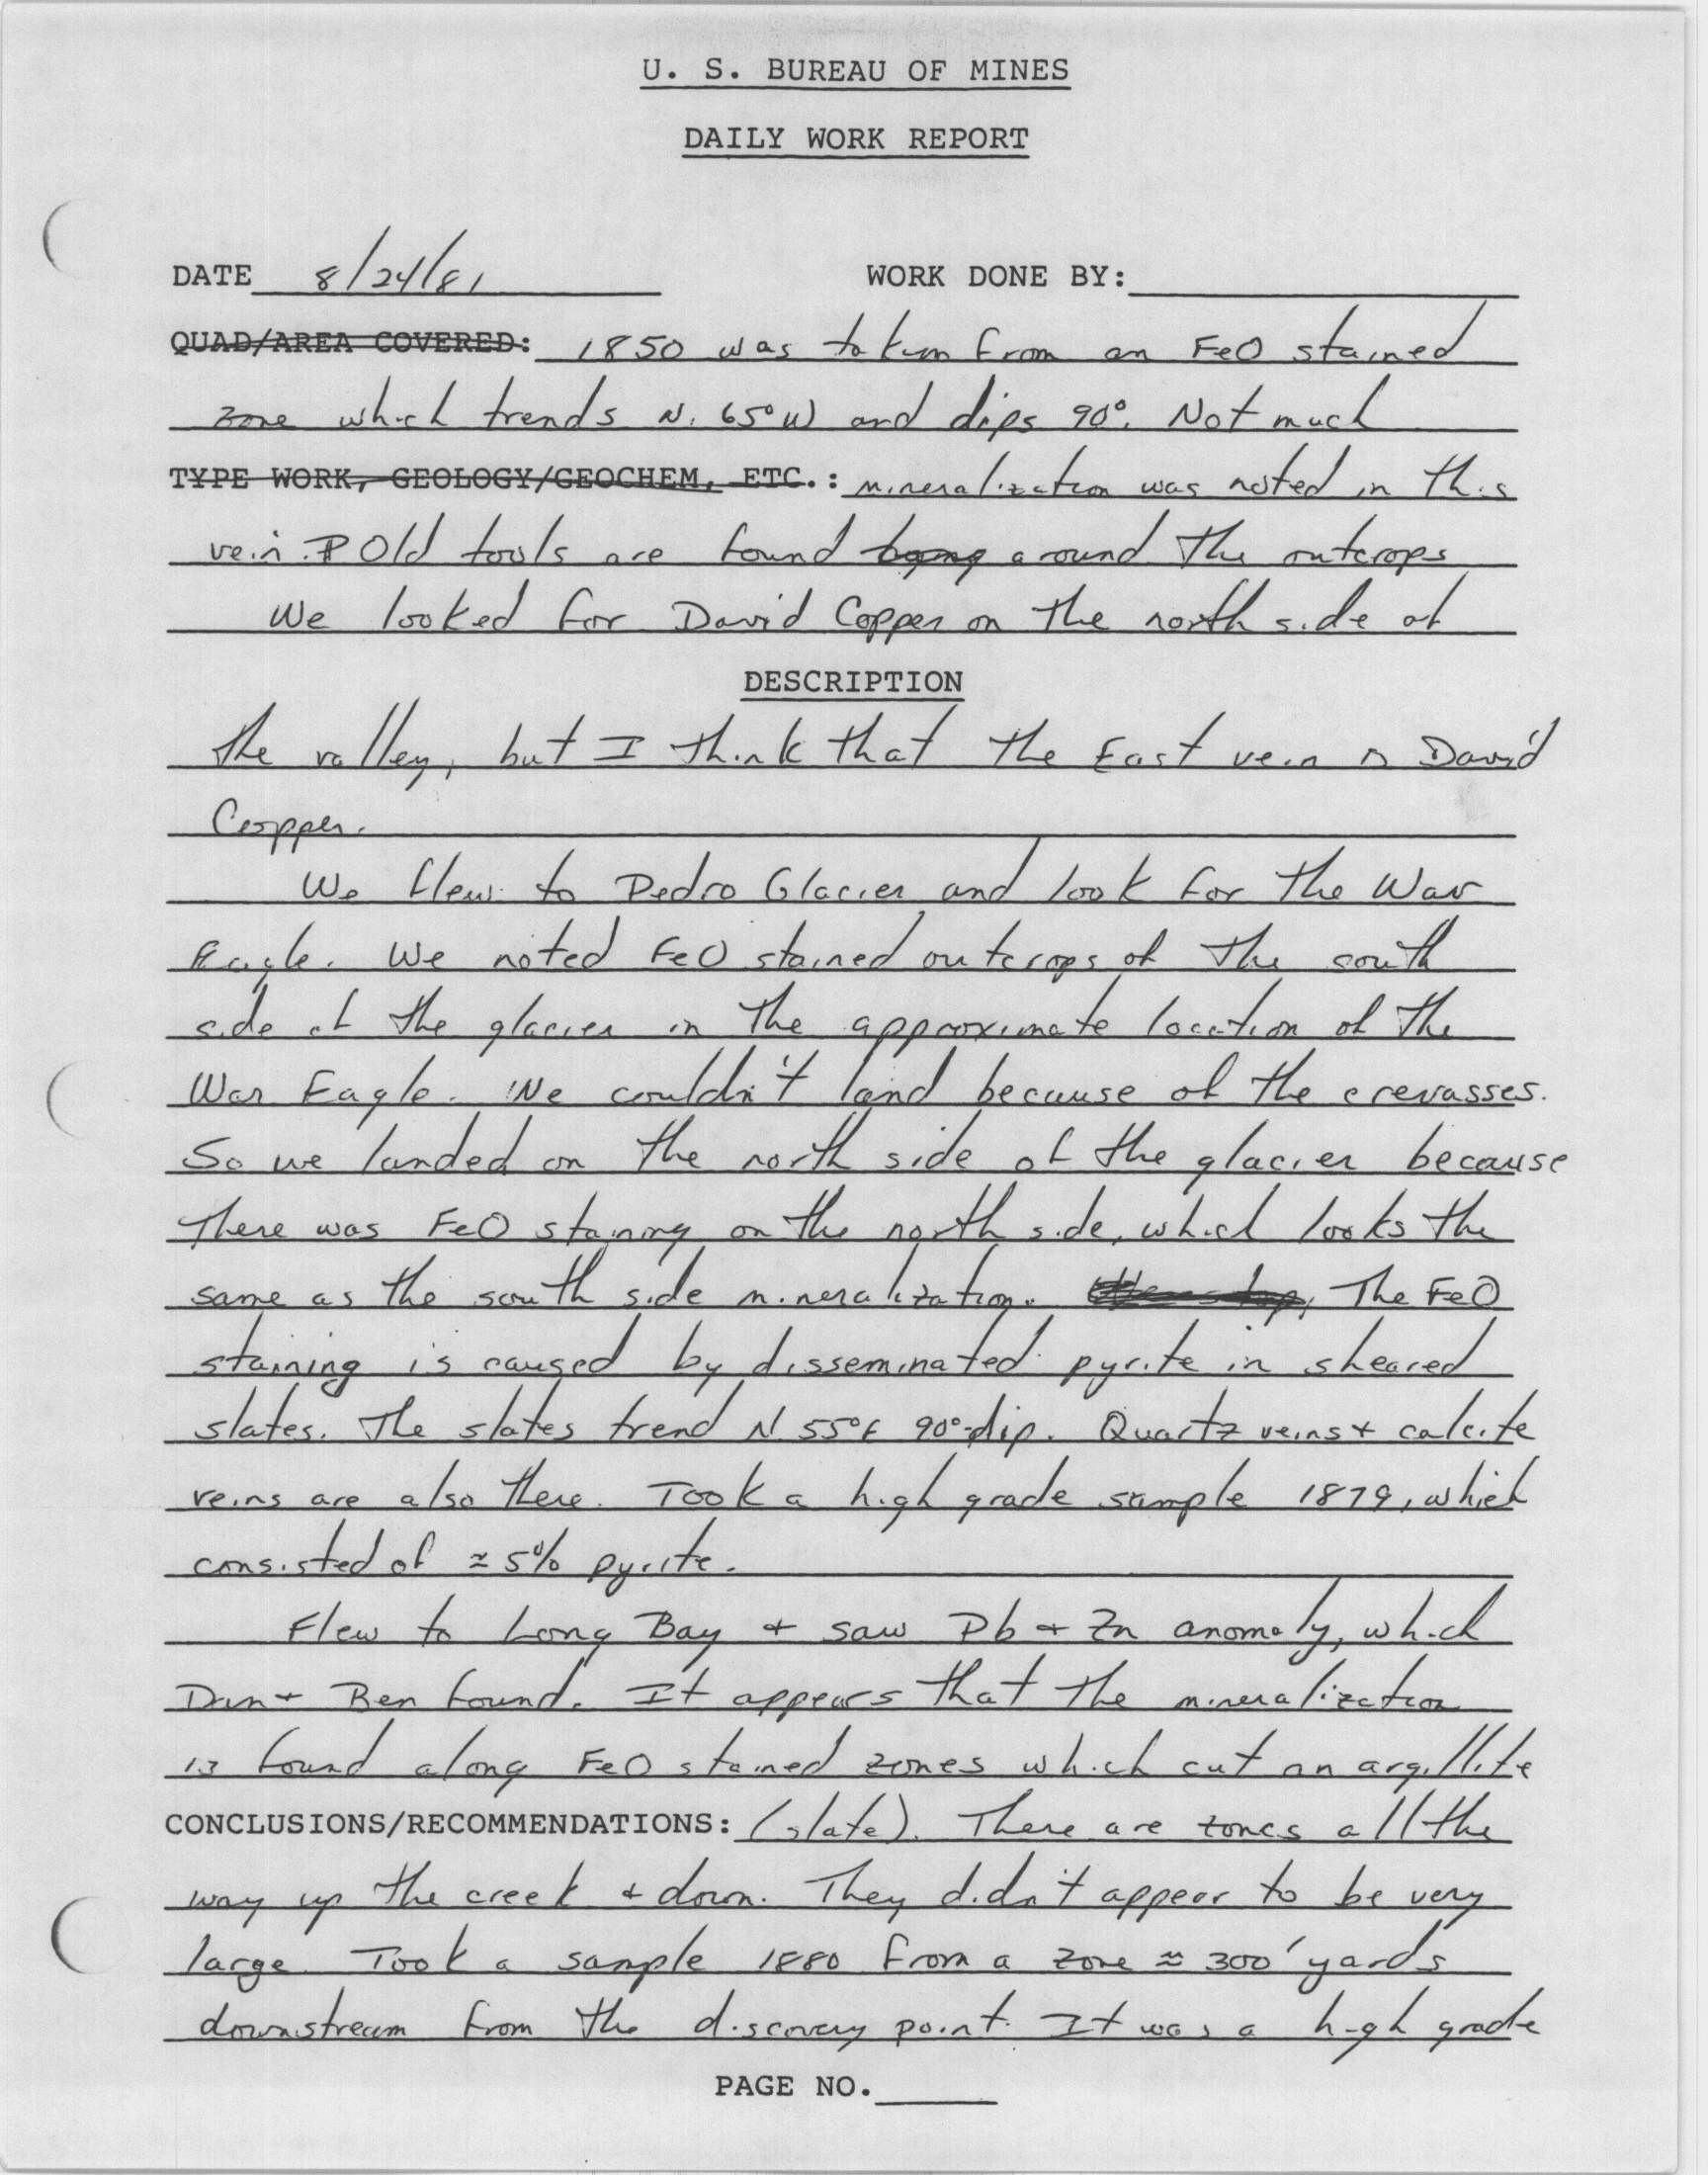 U. S. BUREAU OF MINES
DAILY WORK REPORT
DATE 8/24/81 WORK DONE BY:
QUAD/AREA COVERED: 1850 was taken from an FeO stained
zone which trends N. 65° W and dips 90°. Not much
TYPE WORK, GEOLOGY/GEOCHEM, ETC.: mineralization was noted in this
vein. Old tools are found around the outcrops
We looked for David Copper on the north side of
DESCRIPTION
the valley, but I think that the East vein is David
Copper.
We flew to Pedro Glacier and look for the War
Eagle. We noted FeO stained outcrops of the south
side of the glacier in the approximate location of the
War Eagle. We couldn't land because of the crevasses.
So we landed on the north side of the glacier because
There was FeO staining on the north side, which looks the
same as the south side mineralization. The FeO
staining is caused by disseminated pyrite in sheared
slates. The slates trend N 55° E 90° dip. Quartz veins + calcite
veins are also there. Took a high grade sample 1879, which
consisted of ≈ 5% pyrite.
Flew to Long Bay + saw Pb + Zn anomaly, which
Dan + Ben found. It appears that the mineralization
is found along FeO stained zones which cut an argillite
CONCLUSIONS/RECOMMENDATIONS: (slate). There are zones all the
way up the creek + down. They didn't appear to be very
large. Took a sample 1880 from a zone ≈ 300' yards
downstream from the discovery point. It was a high grade
PAGE NO.